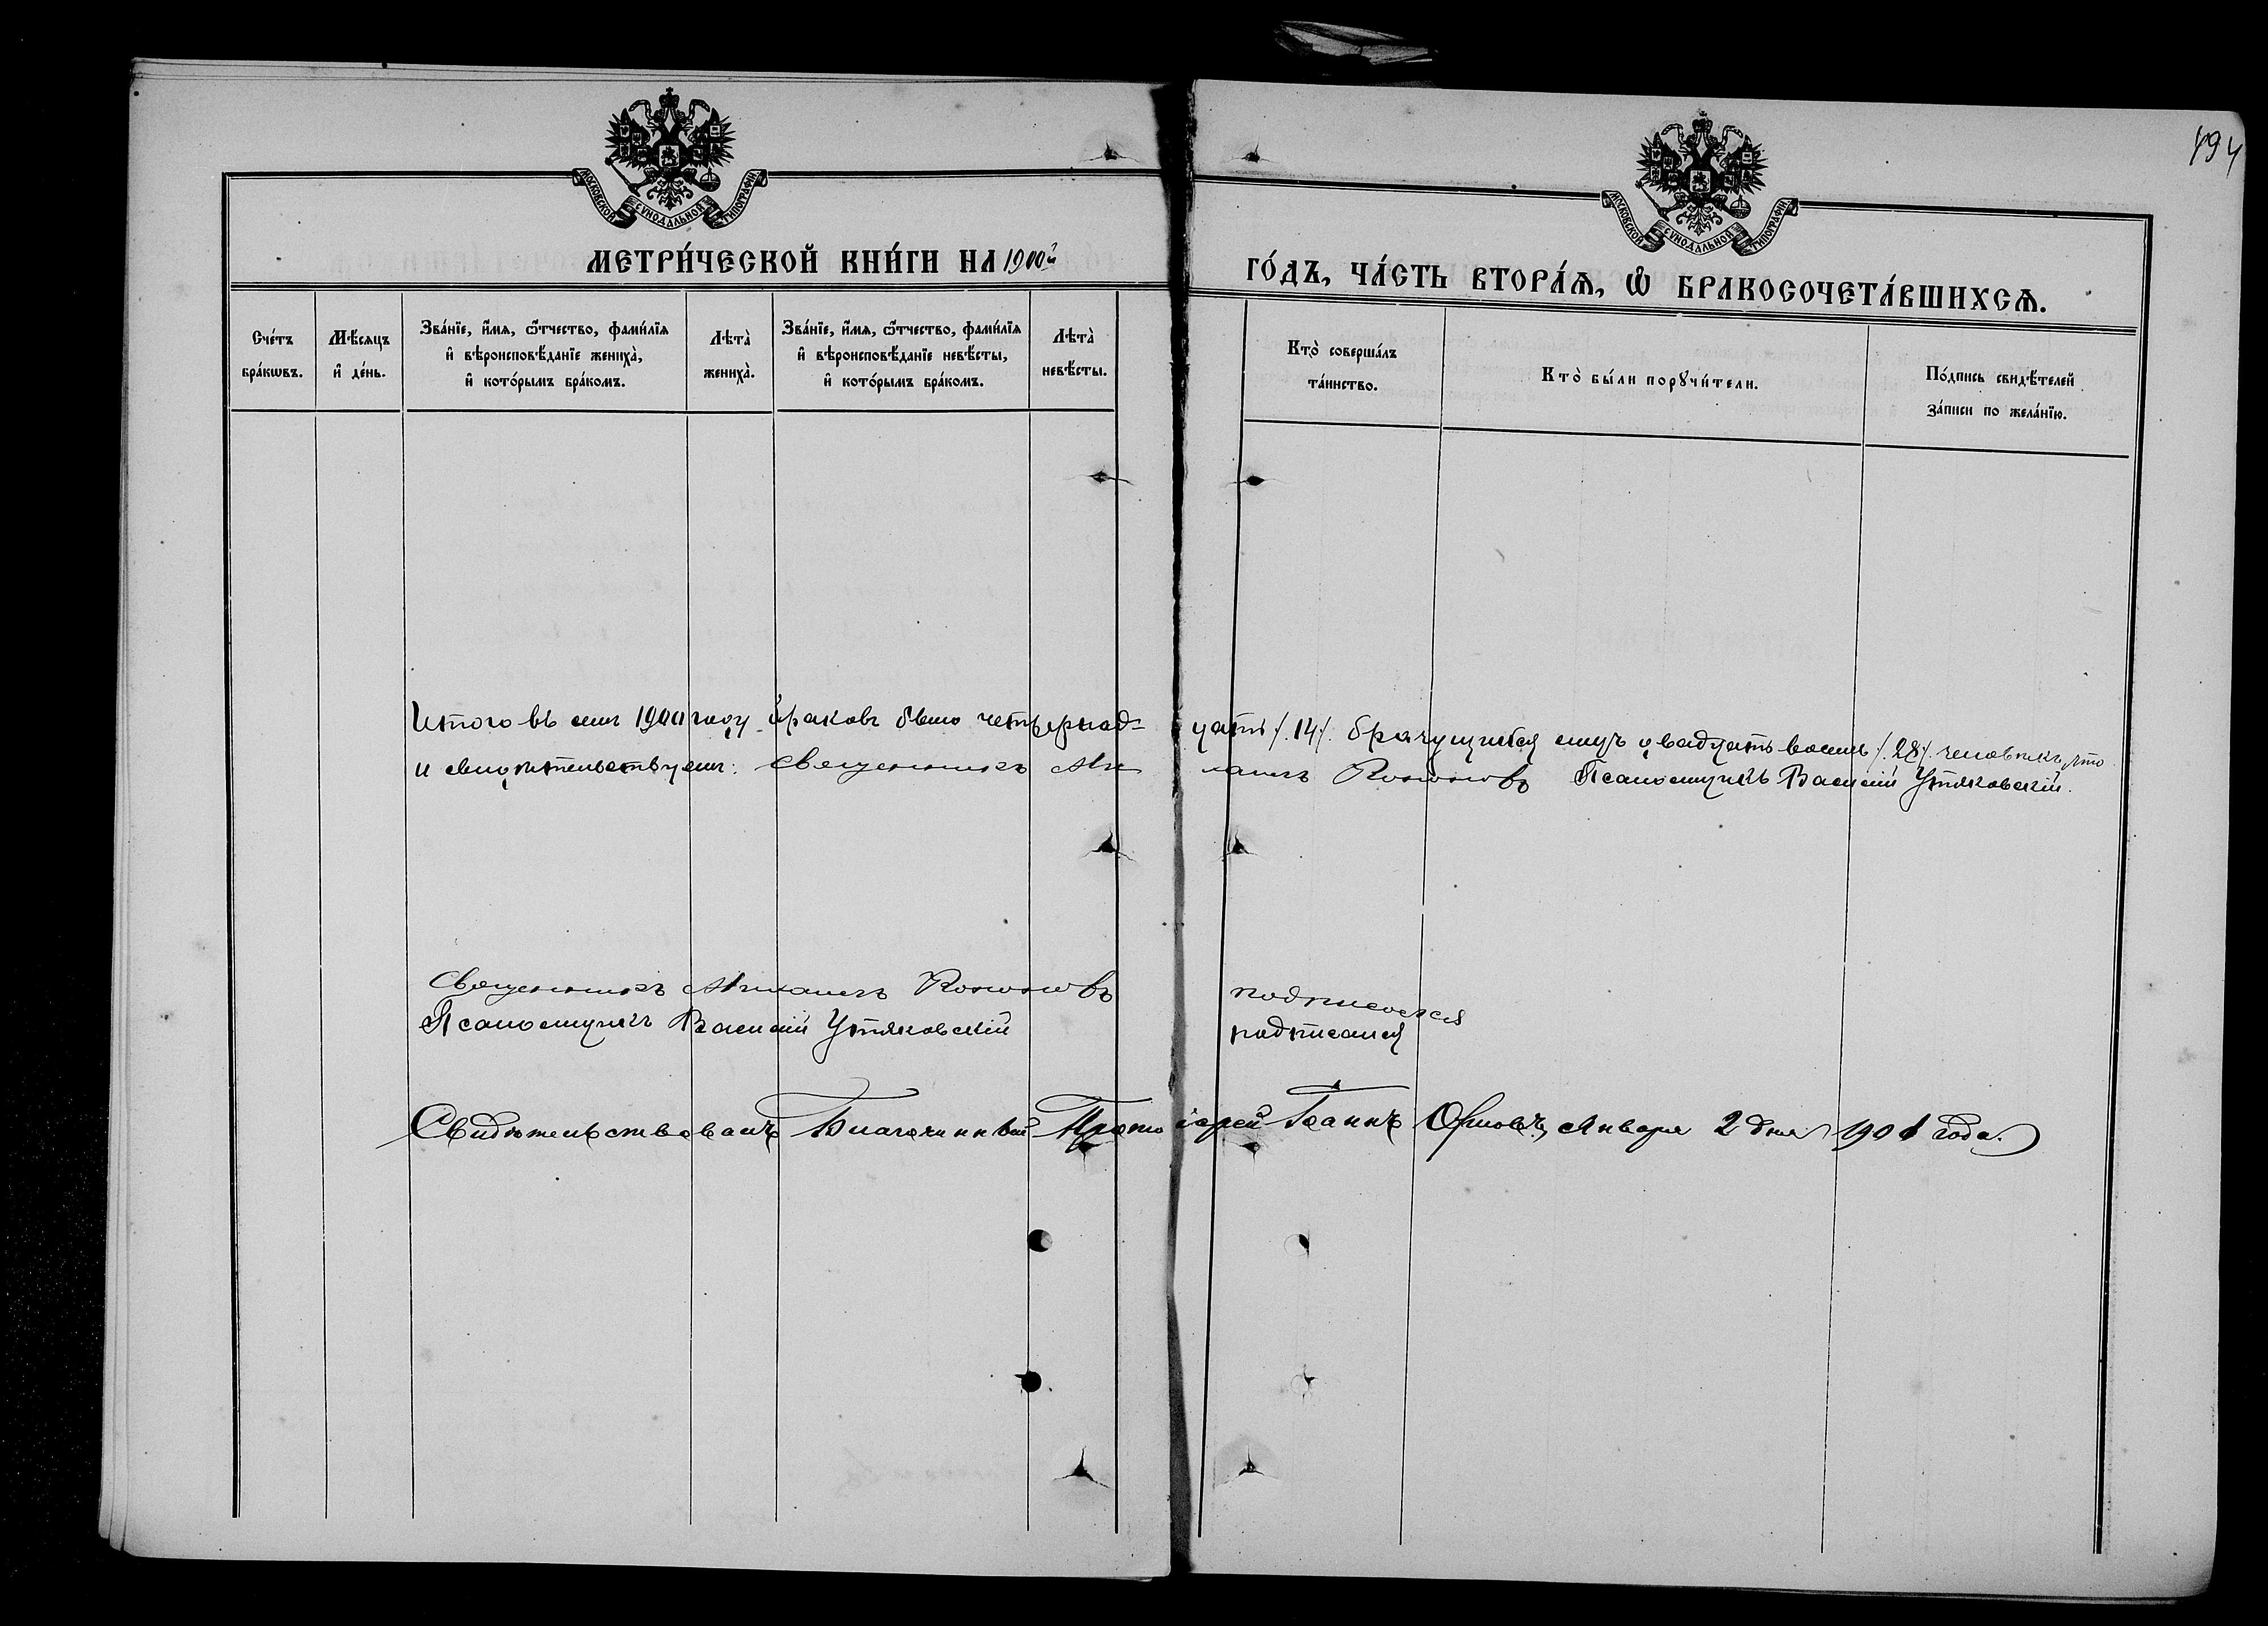 194
МОСКОВСКОЙ СѴНОДАЛЬНОЙ ТИПОГРАФІИ
МОСКОВСКОЙ СѴНОДАЛЬНОЙ ТИПОГРАФІИ
МЕТРИ́ЧЕСКОЙ КНИ́ГИ НА 1900й ГО́ДЪ, ЧА́СТЬ ВТОРА́Ѧ, Ѡ҆ БРАКОСОЧЕТА́ВШИХСѦ.
Сче́тъ бра́кѡвъ.
Мѣ́сѧцъ и҆ де́нь.
Зва́нїе, и҆́мѧ, ѻ҆́тчество, фами́лїѧ и҆ вѣроисповѣ́данїе жениха̀, и҆ кото́рымъ бра́комъ.
Лѣта̀ жениха̀.
Зва́нїе, и҆́мѧ, ѻ҆́тчество, фами́лїѧ и҆ вѣроисповѣ́данїе невѣ́сты, и҆ кото́рымъ бра́комъ.
Лѣта̀ невѣ́сты.
Кто̀ соверша́лъ та́инство.
Кто̀ бы́ли порꙋчи́тели.
По́дпись свидѣ́телей за́писи по жела́нїю.
Итого въ семъ 1900 году браковъ было четырнад=цать /.14/. брачущихся лицъ двадцать восемь /.28/. человѣкъ, что
и свидѣтельствуемъ: Священникъ Кононовъ Псаломщикъ Василій Утяковскій.
Священникъ Кононовъ подписался
Псаломщикъ Василій Утяковскій подписался
Свидѣтельствовалъ Благочинный Протоіерей Іоаннъ Орловъ, Января 2 дня 1901 года.